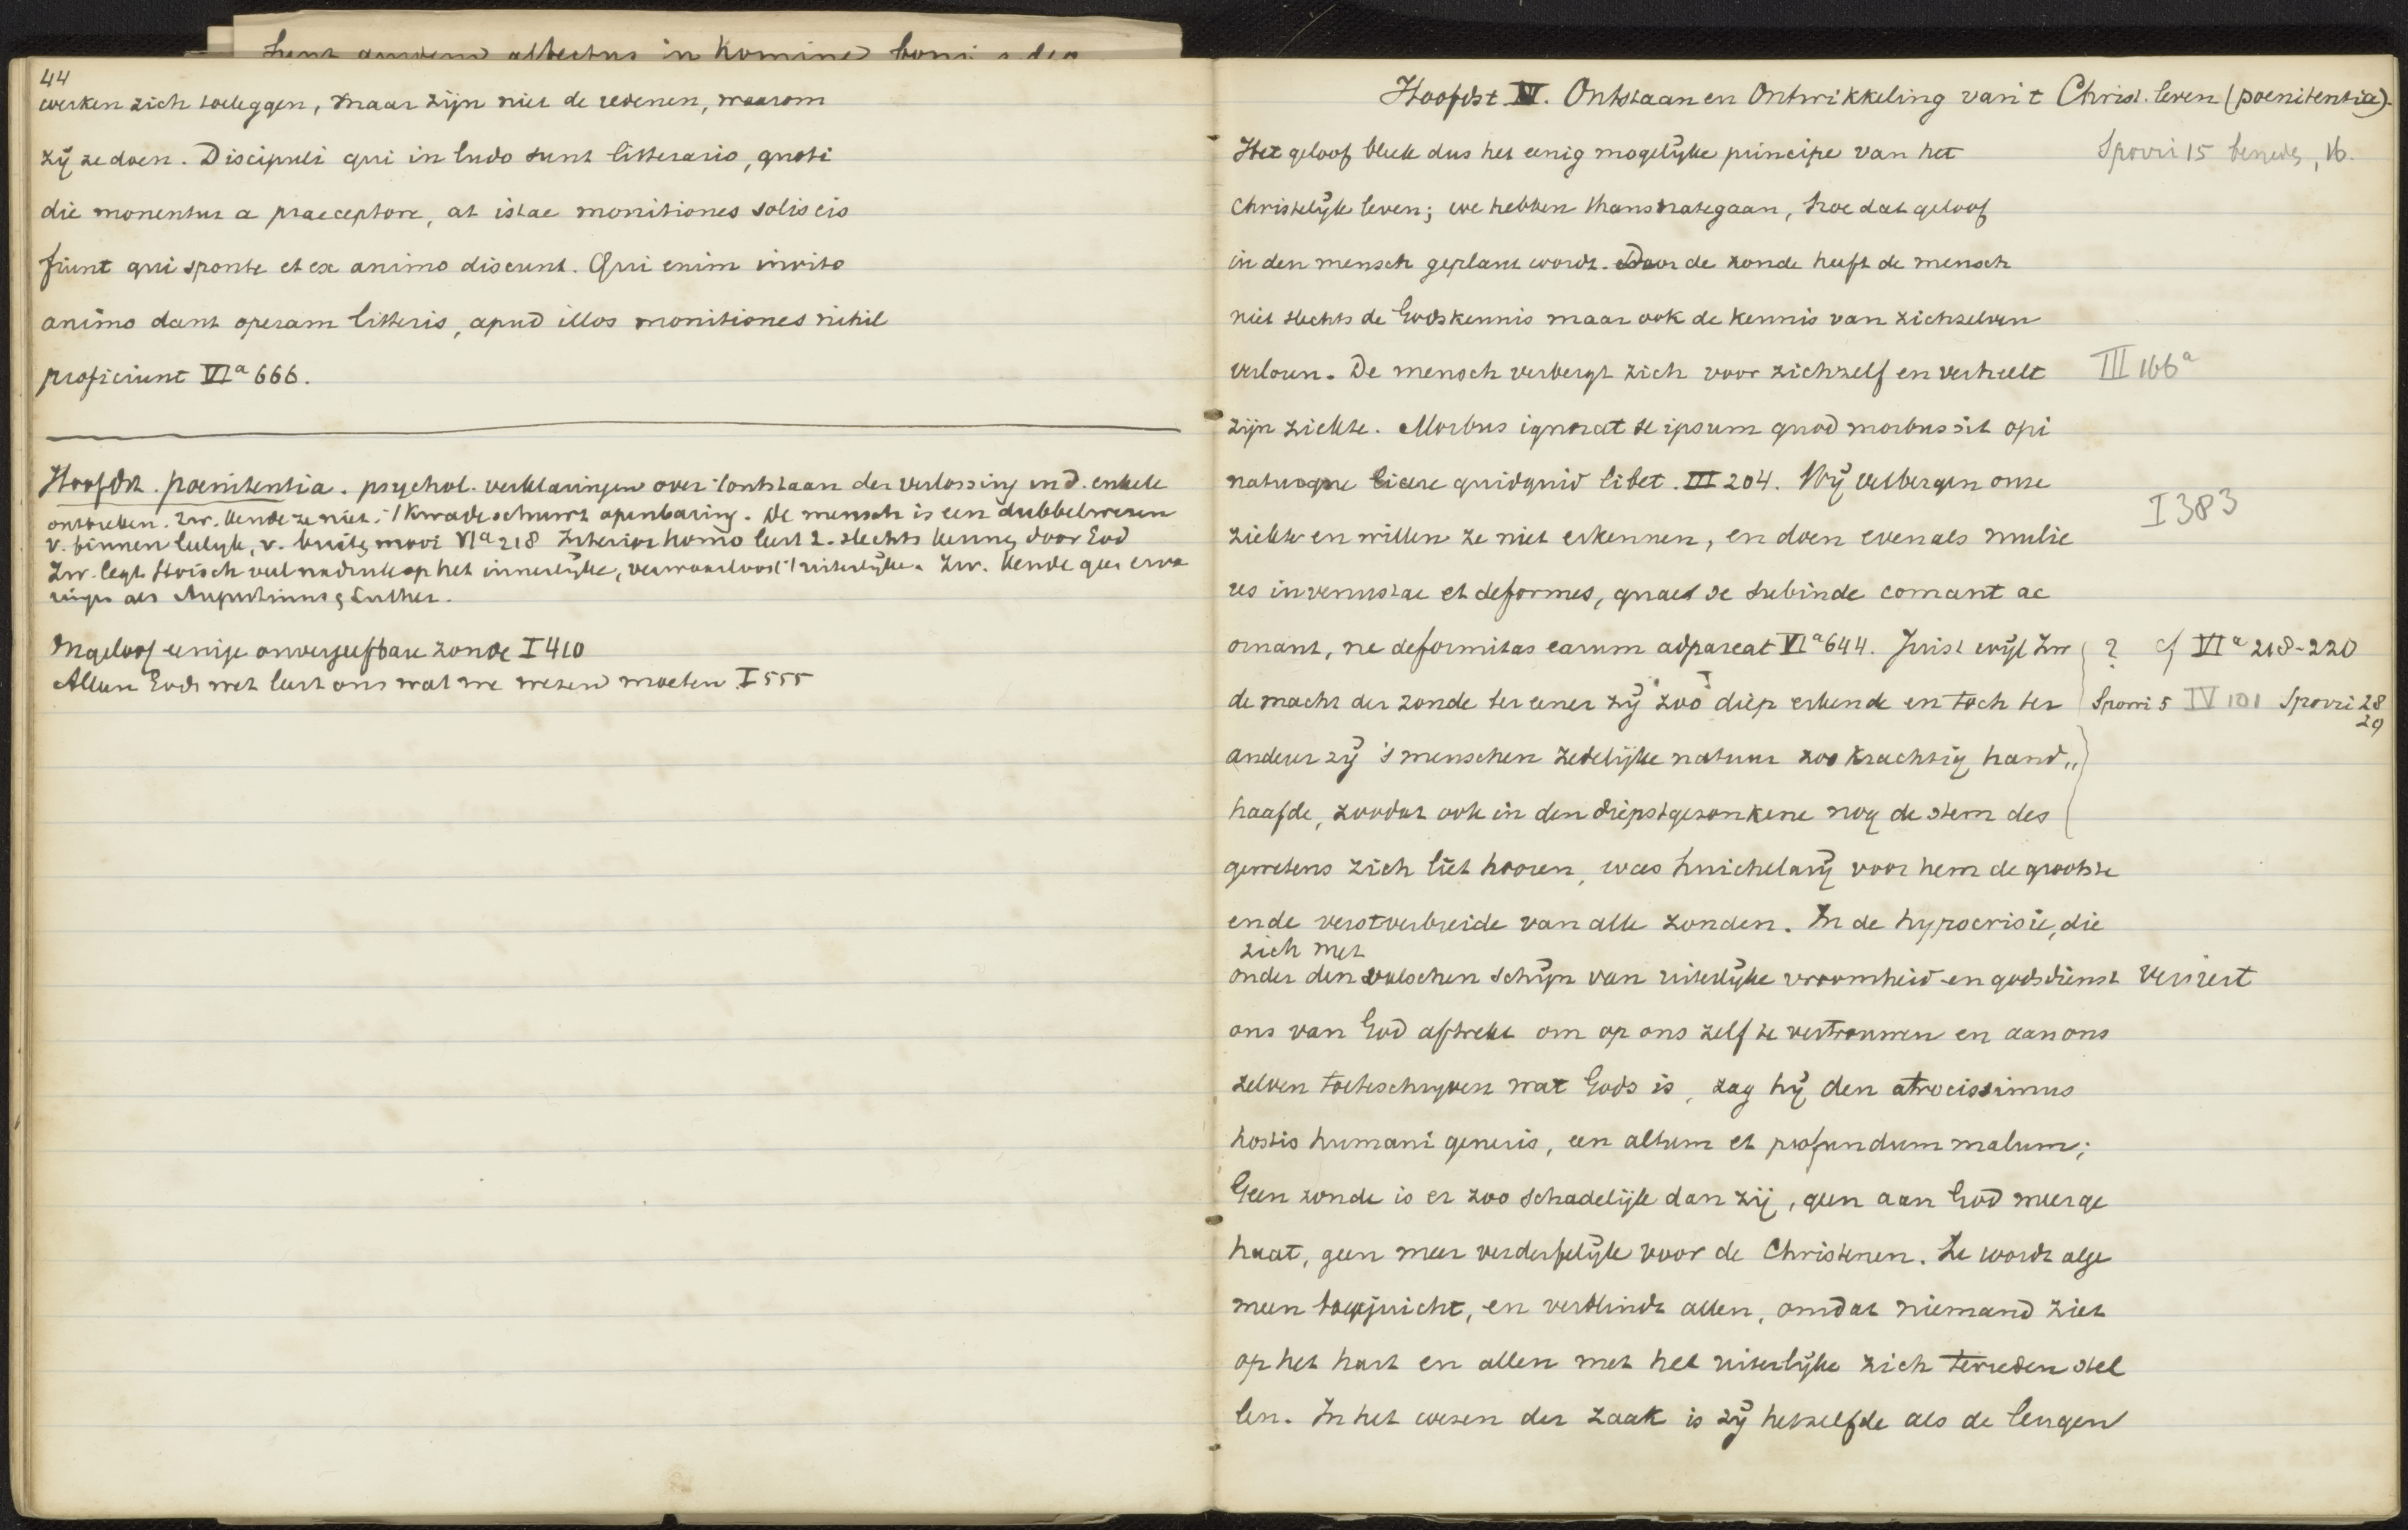 44
werken zich toeleggen, maar zijn niet de redenen, waarom
zij ze doen. Discipuli qui in ludo sunt litterario, quoti
die monentur a praeceptore, at istae monitiones solis eis
fiunt qui sponte et ex animo discunt. Qui enim invito
animo dant operam litteris, apud illos monitiones nihil
proficiunt VIa 666.
Hoofdst. poenitentia. psychol. verklaringen over 't ontstaan der verlossing in d. enkele
ontbreken. Zw. kende ze niet. 't Kwade schuwt openbaring. De mensch is een dubbelwezen
v. binnen leelijk, v. buiten mooi VIa 218 Interior homo leert 2. slechts kennen door God
Zw. legt stoïsch veel nadruk op het innerlijke, verwaarloost 't uiterlijke. Zw. kende geen erva
ringen als Augustinus & Luther.
Ongeloof eenige onvergeefbare zonde I 410
Alleen Gods wet leert ons wat we wezen moeten I 555
Hoofdst. IV. Ontstaan en Ontwikkeling van 't Christ. leven (poenitentia).
Het geloof bleek dus het eenig mogelijke principe van het
Sporri 15 beneden, 16.
Christelijke leven; we hebben thans na te gaan, hoe dat geloof
in den mensch geplant wordt. Door de zonde heeft de mensch
niet slechts de Godskennis maar ook de kennis van zichzelven
verloren. De mensch verbergt zich voor zichzelf en verheelt
III 166a
zijn ziekte. Morbus ignorat se ipsum quod morbus sit opi
naturque licere quidquid libet. III 204. Wij verbergen onze
I 383
ziekte en willen ze niet erkennen, en doen evenals mulie
res invenustae et deformes, quae se subinde comant ac
ornant, ne deformitas earum adpareat VIa 644. Juist wijl Zw
? cf VIa 218-220
de macht der zonde ter eener zij zoo diep erkende en toch ter
Sporri 5 IV 101 Sporri 28
29
anderer zij 's menschen zedelijke natuur zoo krachtig hand„
haafde, zoodat ook in den diepstgezonkene nog de stem des
gewetens zich liet hooren, was huichelarij voor hem de grootste
en de verstverbreide van alle zonden. In de hypocrisie, die
zich met
onder den valschen schijn van uiterlijke vroomheid en godsdienst versiert
ons van God aftrekt om op ons zelf te vertrouwen en aan ons
zelven toe te schrijven wat Gods is, zag hij den atrocissimus
hostis humani generis, een altum et profundum malum;
Geen zonde is er zoo schadelijk dan zij, geen aan God meer ge
haat, geen meer verderfelijk voor de Christenen. Ze wordt alge
meen toegejuicht, en verblindt allen, omdat niemand ziet
op het hart en allen met het uiterlijke zich tevreden stel
len. In het wezen der zaak is zij hetzelfde als de leugen